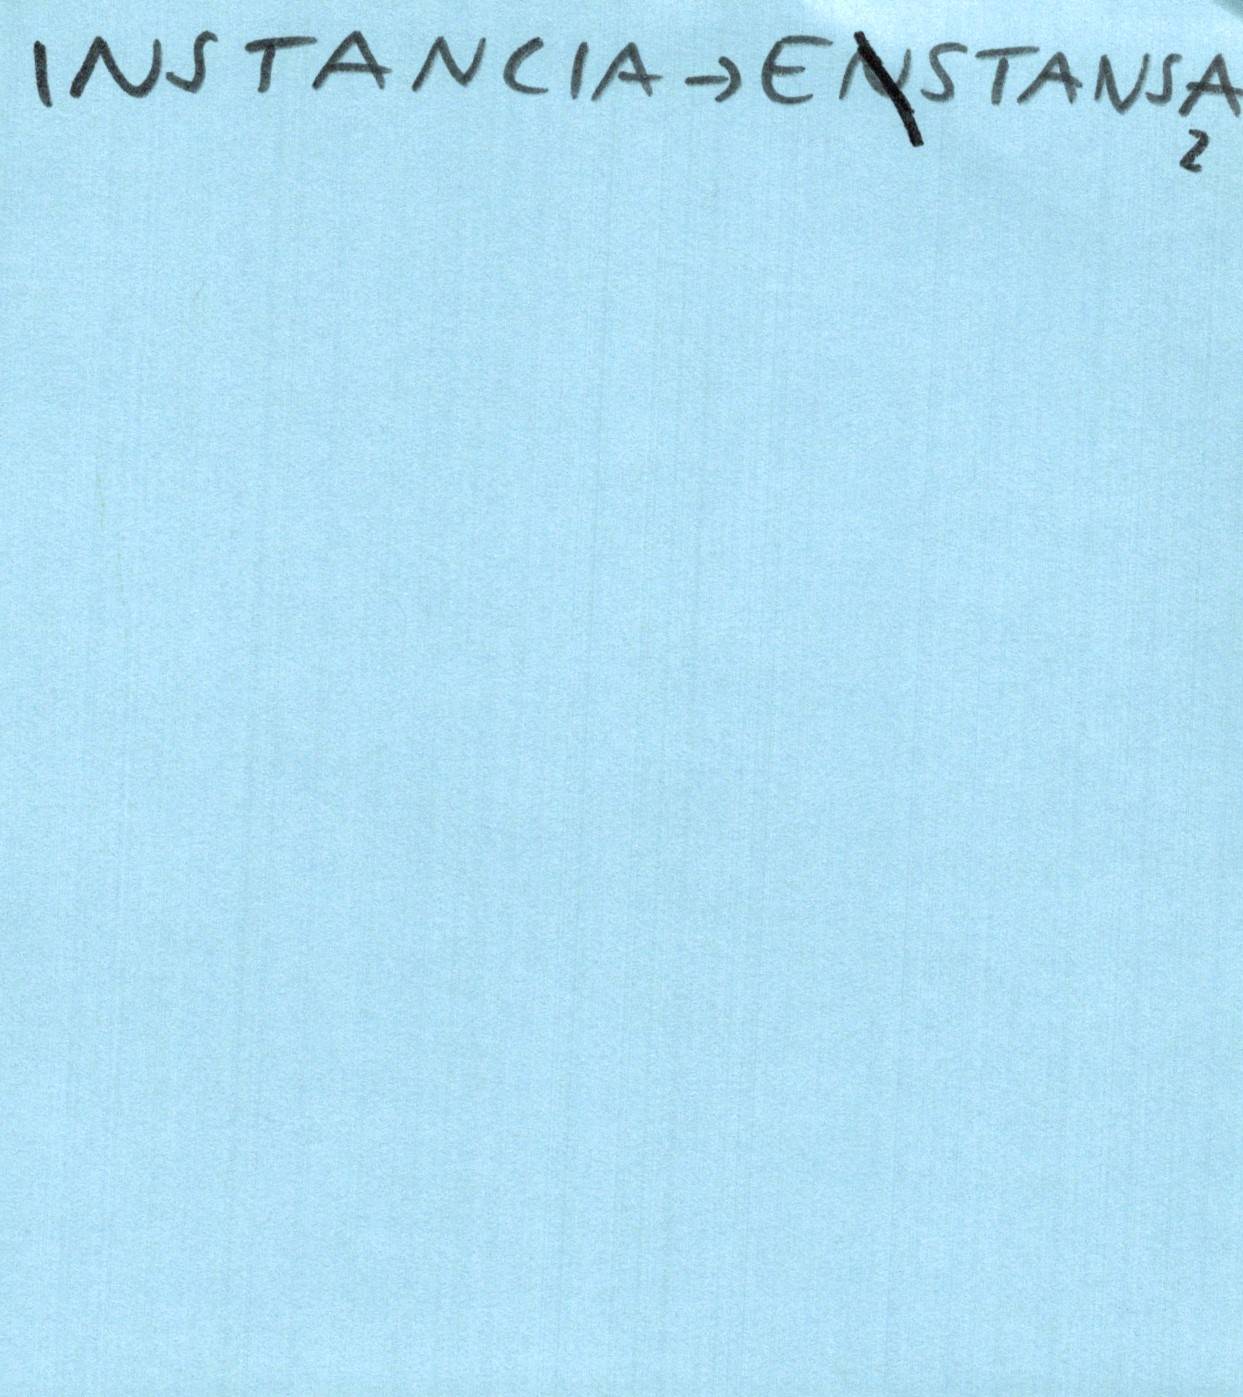 INSTANCIA → ENSTANSA
2